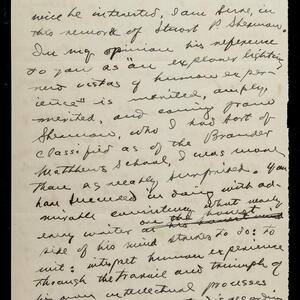 will be interested, I am sure, in
this remark of Stuart P. Sherman.
In my opinion his reference
to you as "an explorer lighting
new vistas of human exper-
ience" is merited, amply
merited, and coming from
Sherman, who I had sort of
classified as of the Brander
Matthews School, I was more
than agreeably surprised. You
have succeeded in doing with ad-
mirable consistency what many
every writer at
side of his mind strives to do: to
wit: interpret human experience
through the travail and triumph of
his own intellectual processes